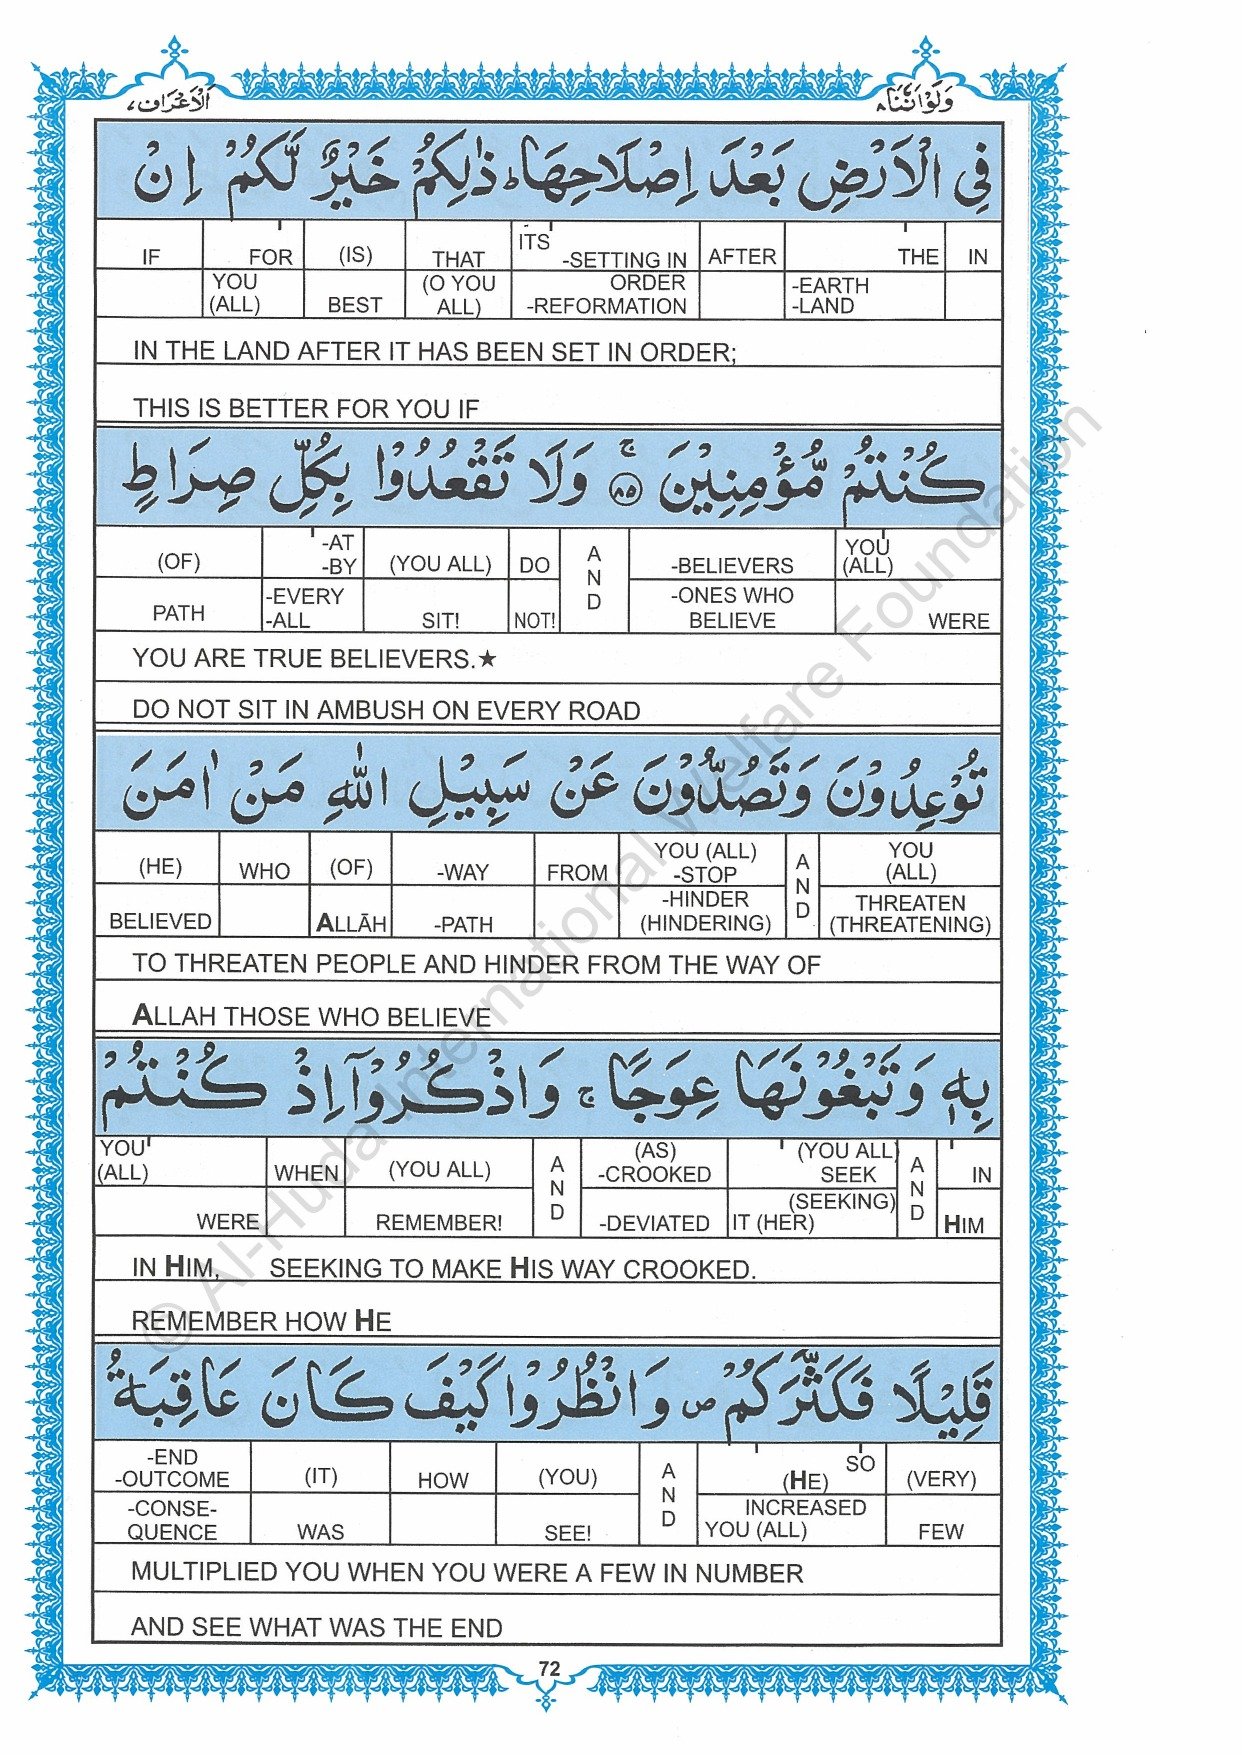 وَلَوْاَنَّنَا ٨
اَلْاَعْرَاف ٧
فِي الْاَرْضِ بَعْدَ اِصْلَاحِهَا ؕ ذٰلِكُمْ خَيْرٌ لَّكُمْ اِنْ
IF FOR (IS) THAT ITS -SETTING IN AFTER THE IN
YOU (ALL) BEST (O YOU ALL) ORDER -REFORMATION -EARTH -LAND
IN THE LAND AFTER IT HAS BEEN SET IN ORDER;
THIS IS BETTER FOR YOU IF
كُنْتُمْ مُّؤْمِنِيْنَ ۚ ﴿٨٥﴾ وَلَا تَقْعُدُوْا بِكُلِّ صِرَاطٍ
(OF) -AT -BY (YOU ALL) DO AND -BELIEVERS YOU (ALL)
PATH -EVERY -ALL SIT! NOT! -ONES WHO BELIEVE WERE
YOU ARE TRUE BELIEVERS.★
DO NOT SIT IN AMBUSH ON EVERY ROAD
تُوْعِدُوْنَ وَتَصُدُّوْنَ عَنْ سَبِيْلِ اللّٰهِ مَنْ اٰمَنَ
(HE) WHO (OF) -WAY FROM YOU (ALL) -STOP AND YOU (ALL)
BELIEVED ALLĀH -PATH -HINDER (HINDERING) THREATEN (THREATENING)
TO THREATEN PEOPLE AND HINDER FROM THE WAY OF
ALLAH THOSE WHO BELIEVE
بِهٖ وَتَبْغُوْنَهَا عِوَجًا ۚ وَاذْكُرُوْۤا اِذْ كُنْتُمْ
YOU (ALL) WHEN (YOU ALL) AND (AS) -CROOKED (YOU ALL) SEEK AND IN
WERE REMEMBER! -DEVIATED (SEEKING) IT (HER) HIM
IN HIM, SEEKING TO MAKE HIS WAY CROOKED.
REMEMBER HOW HE
قَلِيْلًا فَكَثَّرَكُمْ ۪ وَانْظُرُوْا كَيْفَ كَانَ عَاقِبَةُ
-END -OUTCOME (IT) HOW (YOU) AND SO (HE) (VERY)
-CONSE-QUENCE WAS SEE! INCREASED YOU (ALL) FEW
MULTIPLIED YOU WHEN YOU WERE A FEW IN NUMBER
AND SEE WHAT WAS THE END
72
© Al-Huda International Welfare Foundation